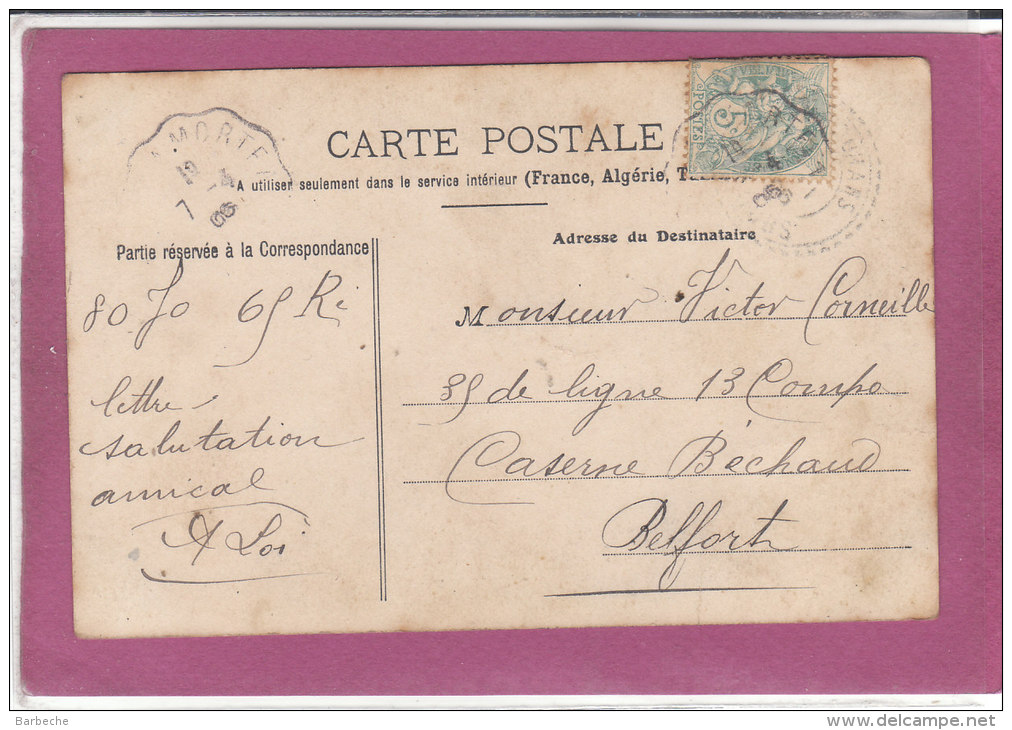 CARTE POSTALE
A utiliser seulement dans le service intérieur (France, Algérie,
Partie réservée à la Correspondance
Adresse du Destinataire
MORTE
12
4
7
06
5
POSTES
12
4
06
80 Jo 65 Ri
lettre
salutation
amical
A Loi
Monsieur Victor Corneille
35 de ligne 13 Compe
Caserne Béchaud
Belfort
Barbeche
www.delcampe.net